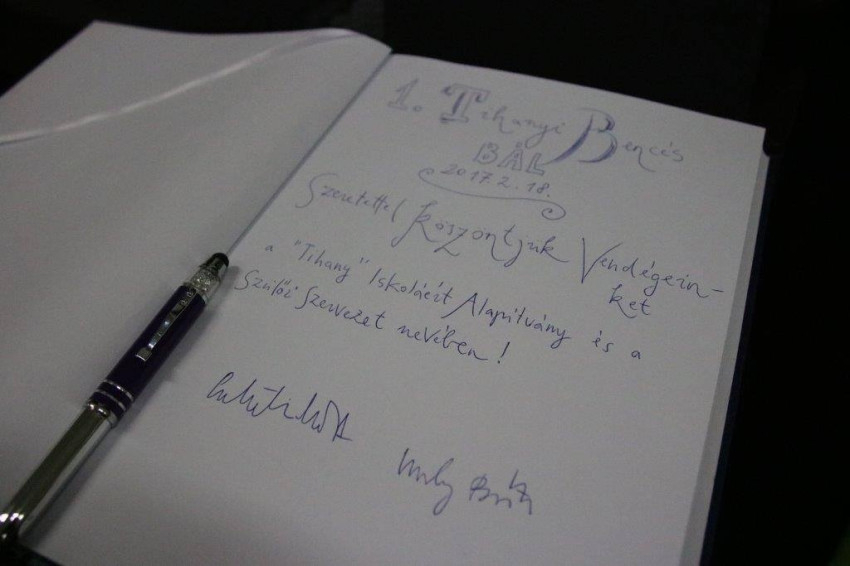 1. Tihanyi Bencés
BÁL
2017.2.18.
Szeretettel köszöntjük Vendégein-
ket
a "Tihany" Iskoláért Alapítvány és a
Szülői Szervezet nevében!